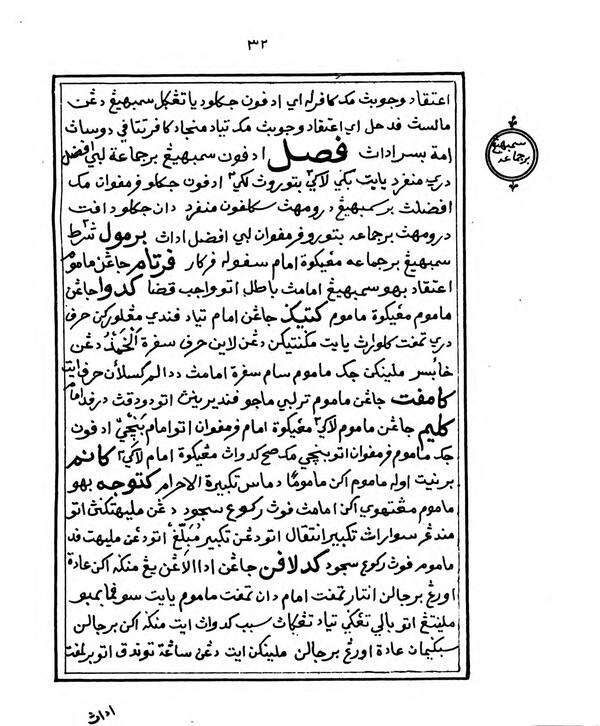 ٣٢
اعتقاد وجوبڽ مک کافرله اي ادفون جکلو دياتڠݢل سمبهيڠ دڠن
مالسڽ فدحل اي اعتقاد وجوبڽ مک تياد منجاد کافر تتافي دوساڽ
امة بسر اداڽ فصل ادفون سمبهيڠ برجماعة لبي افضل
دري منفرد يايت بݢي لاکي٢ بتورڽ لݢي٢ ادفون جکلو فرمفوان مک
افضلڽ برسمبهيڠ درومهڽ سکلفون منفرد دان جکلو دافت
درومهڽ برجماعه بتورو فرمفوان لبي افضل اداڽ برمول شرط٢
سمبهيڠ برجماعه مڠيکوة امام سفوله فرکار فرتام جاڠن ماموم
اعتقاد بهو سمبهيڠ امامڽ باطل اتو واجب قضا کدوا جاڠن
ماموم مڠيکوة ماموم کتيݢ جاڠن امام تياد فندي مڠلورکن حرف
دري تمفت کلوارڽ يايت مڠݢنتيکن دڠن لاين حرف سفرة اَلْحَمْدُ دڠن
خائبسر ملينکن جک ماموم سام سفرة امامڽ ددالم کسلاهن حرف ايت
کأمفت جاڠن ماموم ترلبي ماجو فنديرينڽ اتو دودقڽ درفد امام
کليم جاڠن ماموم لاکي٢ مڠيکوة امام فرمفوان اتو امام بنچي ادفون
جک ماموم فرمفوان اتو بنچي مک صح کدواڽ مڠيکوة امام لاکي٢ کأنم
برنية اوله ماموم اکن مأموما دماس تکبيرة الاحرام کتوجه بهو
ماموم مڠتهوي اکن امامڽ فوڽ رکوع سجود دڠن مليهتکنڽ اتو
مندڠر سواراڽ تکبير انتقال اتو دڠن تکبير مُبَلِّغْ اتو دڠن مليهت فد
مامومر فوڽ رکوع سجود کدلافن جاڠن ادا الاڠن يڠ منݢه اکن عادة
اورڠ برجالن انتار تمفت امام دان تمفت ماموم يايت سوڤاي بمبو
ملينتڠ اتو بالي تڠݢي تياد تڠݢاڽ سبب کدواڽ ايت منݢه اکن برجالن
سبݢيمان عادة اورڠ برجالن ملينکن ايت دڠن سأته توندق اتو برلمفت
سمبهيڠ
برجماعه
اداڽ